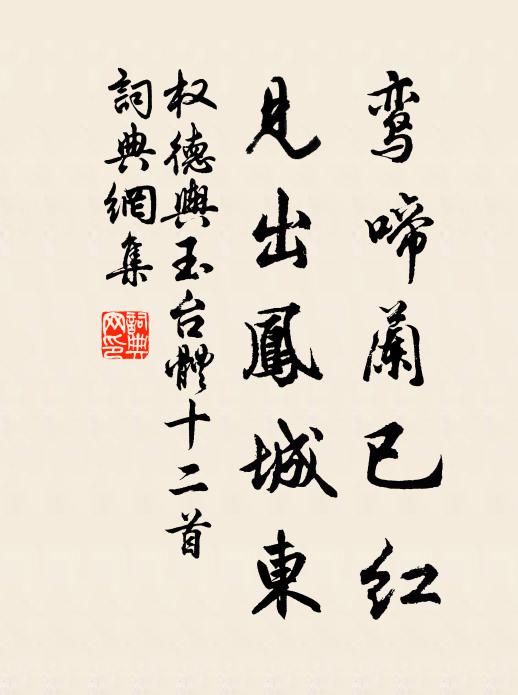 鸾啼蘭已红
見出鳳城東
权德輿玉台體十二首
詞典網集
詞典網印